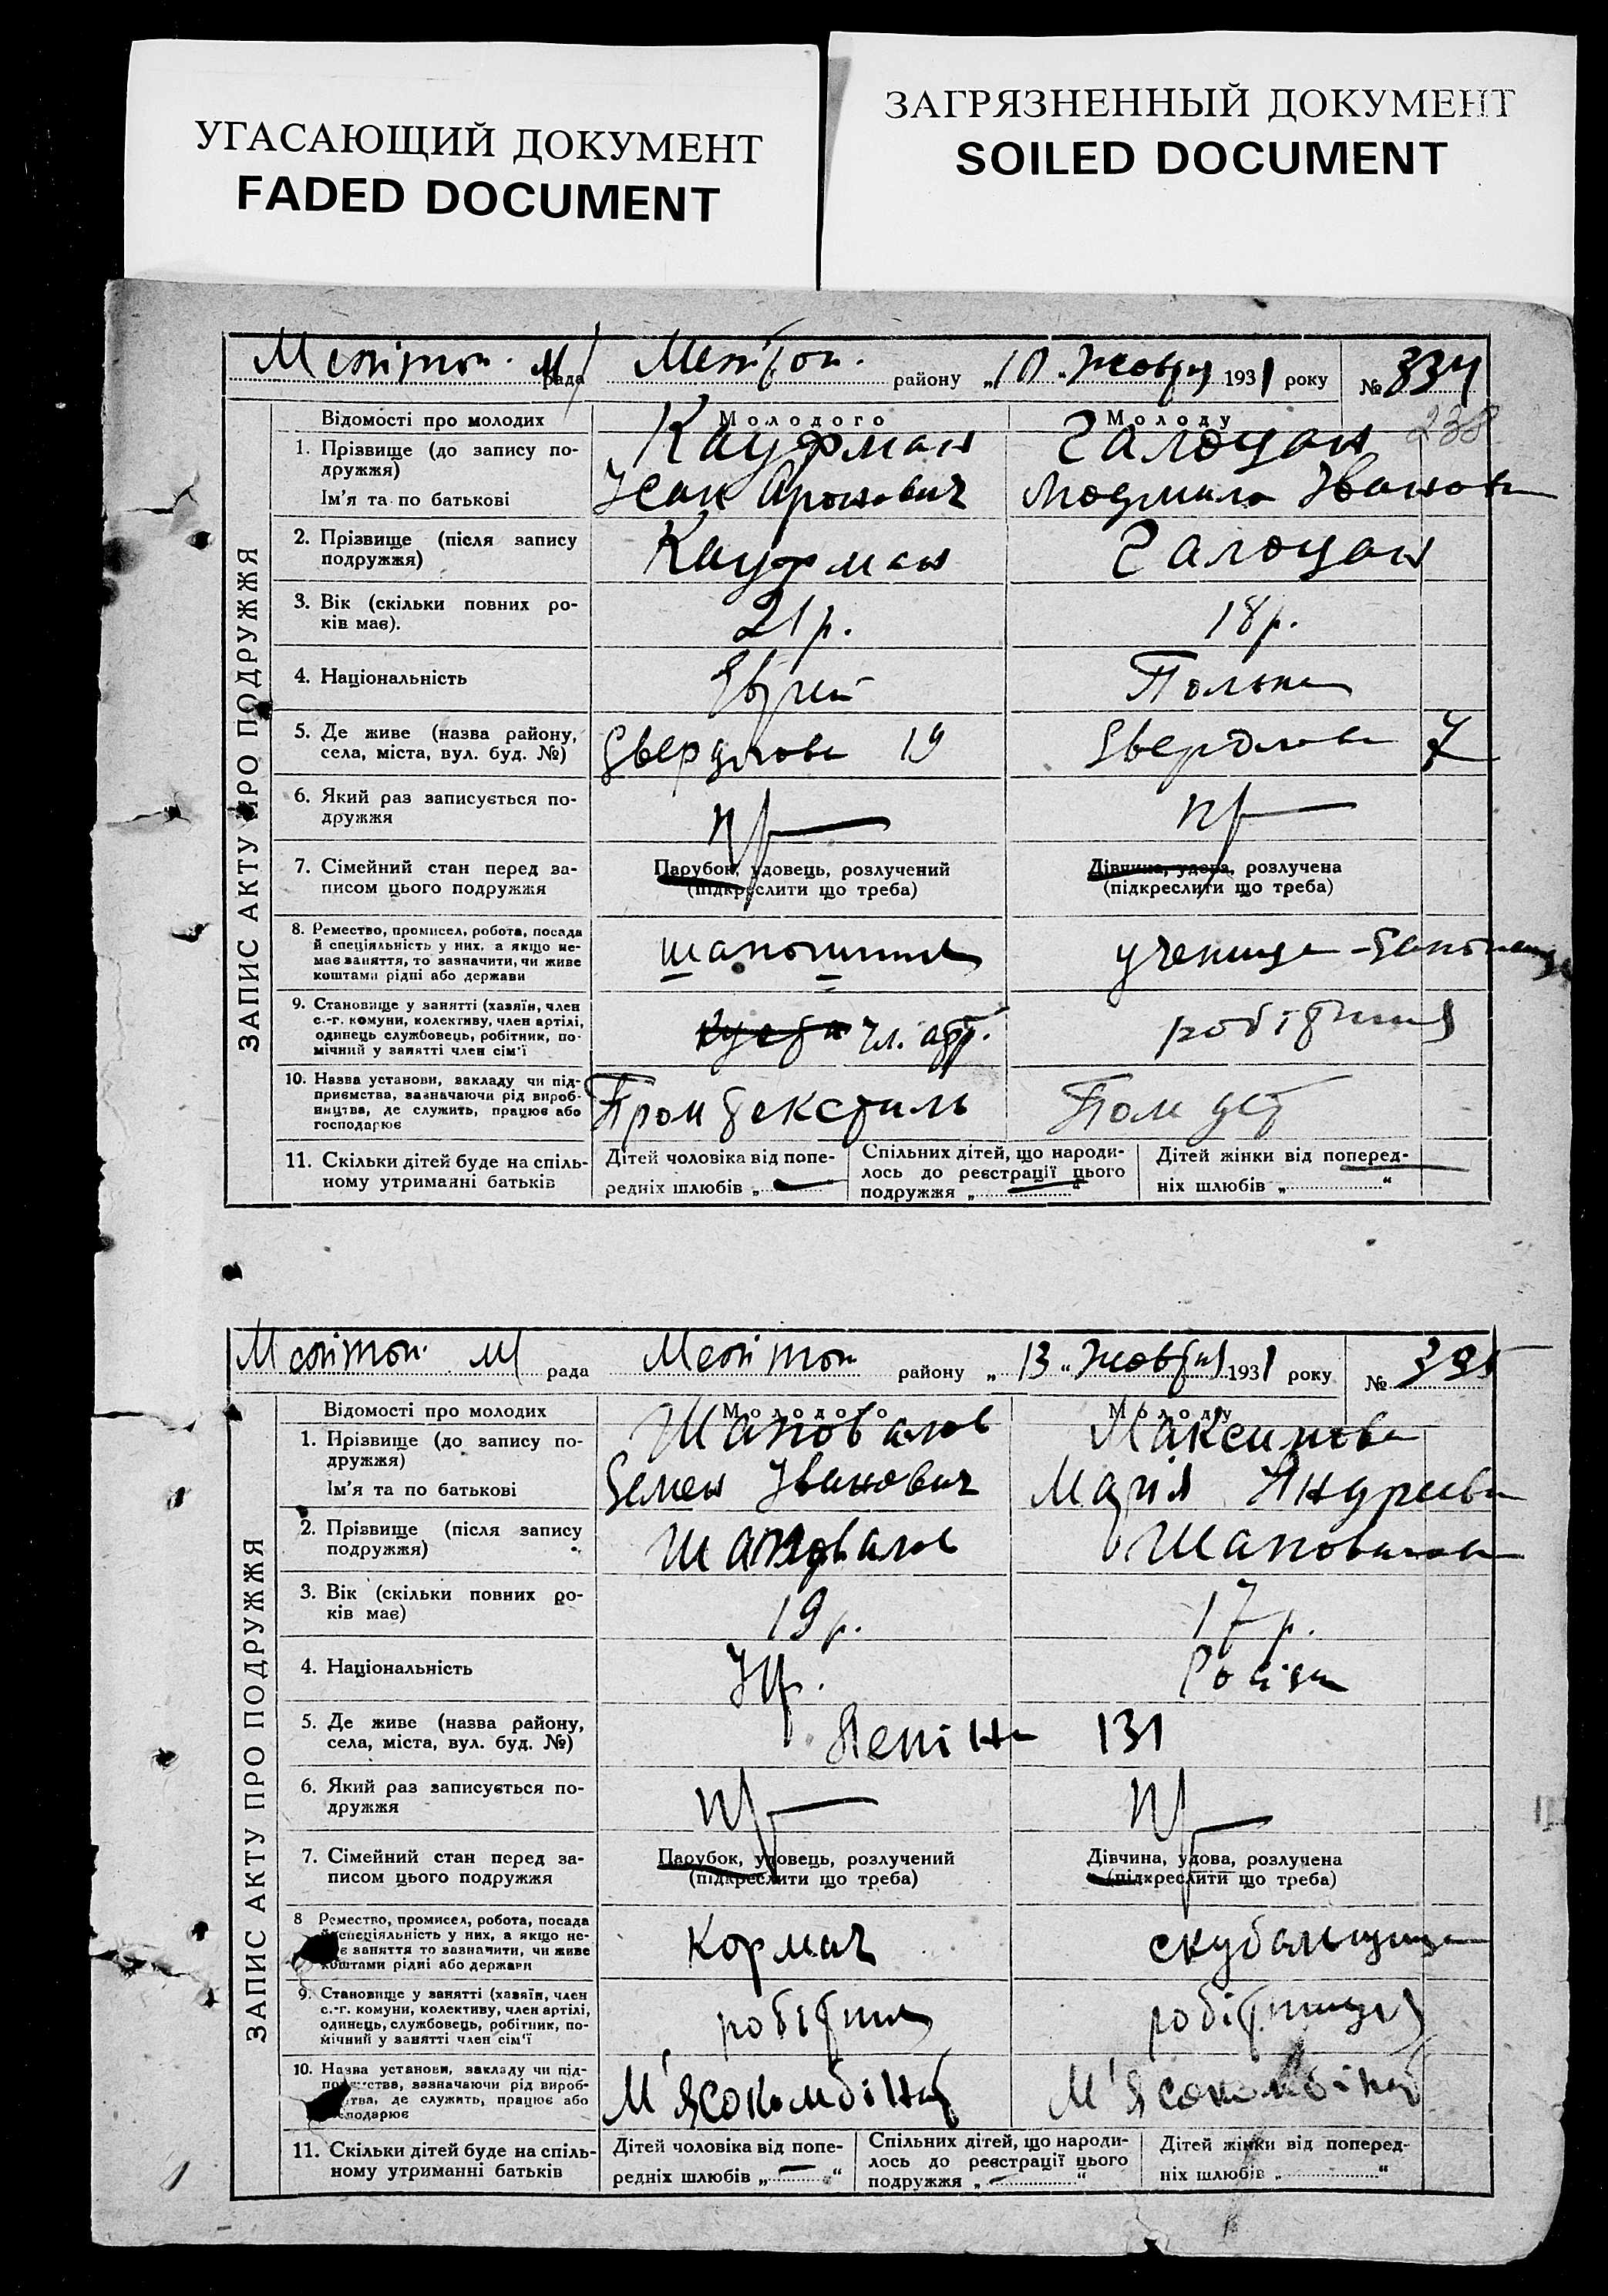 УГАСАЮЩИЙ ДОКУМЕНТ
FADED DOCUMENT
ЗАГРЯЗНЕННЫЙ ДОКУМЕНТ
SOILED DOCUMENT
ЗАПИС АКТУ ПРО ПОДРУЖЖЯ
Мелітоп. М/ рада Мелітоп. району „10 " жовтня 1931 року № 334
238
Відомості про молодих Молодого Молоду
1. Прізвище (до запису по-
дружжя) Кауфман
Ім'я та по батькові Ісак Аронович Людмила Іванов
2. Прізвище (після запису
подружжя) Кауфман
3. Вік (скільки повних ро-
ків має). 21 р. 18 р.
4. Національність Єврей Полька
5. Де живе (назва району,
села, міста, вул. буд. №) Свердлова 19 Свердлова 7
6. Який раз записується по-
дружжя пр пр
7. Сімейний стан перед за-
писом цього подружжя
Парубок, удовець, розлучений
(підкреслити що треба)
Дівчина, удова, розлучена
(підкреслити що треба)
8. Ремество, промисел, робота, посада
й спеціяльність у них, а якщо не-
має заняття, то зазначити, чи живе
коштами рідні або держави
учениця
9. Становище у занятті (хазяїн, член
с.-г. комуни, колективу, член артілі,
одинець службовець, робітник, по-
мічний у занятті член сім'ї
чл. арт. робітниця
10. Назва установи, закладу чи під-
приємства, зазначаючи рід вироб-
ництва, де служить, працює або
господарює
Промтекстиль
11. Скільки дітей буде на спіль-
ному утриманні батьків
Дітей чоловіка від попе-
редніх шлюбів „ "
Спільних дітей, що народи-
лось до реєстрації цього
подружжя „ "
Дітей жінки від поперед-
ніх шлюбів „ "
ЗАПИС АКТУ ПРО ПОДРУЖЖЯ
Мелітоп. М/ рада Мелітоп району „13 " жовтня 1931 року № 335
Відомості про молодих Молодого Молоду
1. Прізвище (до запису по-
дружжя) Шаповалов Максимова
Ім'я та по батькові Семен Іванович Марія Андреєвн
2. Прізвище (після запису
подружжя) Шаповалов Шаповалова
3. Вік (скільки повних ро-
ків має) 19 р. 17 р.
4. Національність Укр. Росіян
5. Де живе (назва району,
села, міста, вул. буд. №) Леніна 131
6. Який раз записується по-
дружжя пр пр
7. Сімейний стан перед за-
писом цього подружжя
Парубок, удовець, розлучений
(підкреслити що треба)
Дівчина, удова, розлучена
(підкреслити що треба)
8 Ремество, промисел, робота, посада
й спеціяльність у них, а якщо не-
має заняття то зазначити, чи живе
коштами рідні або держави
кормач скубальщиця
9. Становище у занятті (хазяїн, член
с.-г. комуни, колективу, член артілі,
одинець, службовець, робітник, по-
мічний у занятті член сім'ї
робітник робітниця
10. Назва установи, закладу чи під-
приємства, зазначаючи рід вироб-
ництва, де служить, працює або
господарює
М'ясокомбінат М'ясокомбінат
11. Скільки дітей буде на спіль-
ному утриманні батьків
Дітей чоловіка від попе-
редніх шлюбів „ "
Спільних дітей, що народи-
лось до реєстрації цього
подружжя „ "
Дітей жінки від поперед-
ніх шлюбів „ "